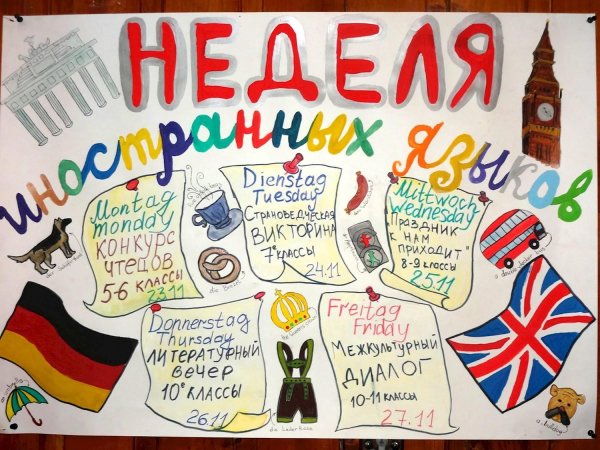 НЕДЕЛЯ
иностранных языков
Montag
monday
КОНКУРС
ЧТЕЦОВ
5-6 КЛАССЫ
23.11
Dienstag
Tuesday
СТРАНОВЕДЧЕСКАЯ
ВИКТОРИНА
7е КЛАССЫ
24.11
Mittwoch
Wednesday
"ПРАЗДНИК
К НАМ
ПРИХОДИТ"
8-9 КЛАССЫ
25.11
Donnerstag
Thursday
ЛИТЕРАТУРНЫЙ
ВЕЧЕР
10е КЛАССЫ
26.11
Freitag
Friday
МЕЖКУЛЬТУРНЫЙ
ДИАЛОГ
10-11 КЛАССЫ
27.11
die Brezel
a double decker bus
die Lederhose
a bulldog